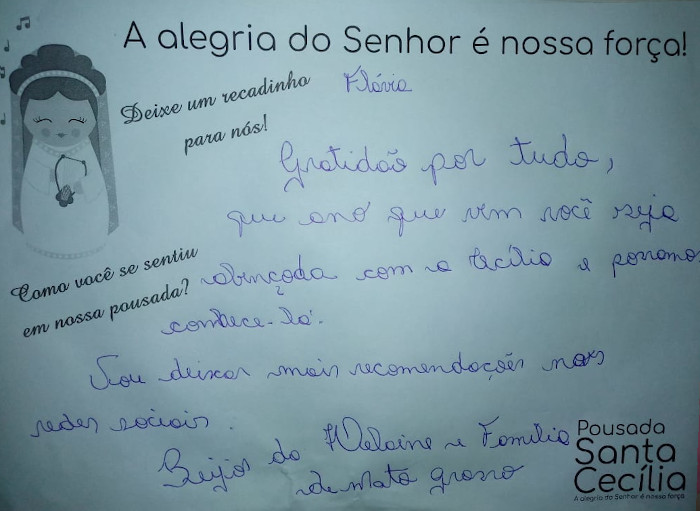 A alegria do Senhor é nossa força!
Deixe um recadinho
para nós!
Flávia
Gratidão por tudo,
que ano que vem você seja
Como você se sentiu
em nossa pousada?
abençoada com a Cecília e possamos
conhece-la.
Vou deixar mais recomendações nas
redes sociais.
Beijos da Welaine e Família
de mato grosso
Pousada
Santa
Cecília
A alegria do Senhor é nossa força